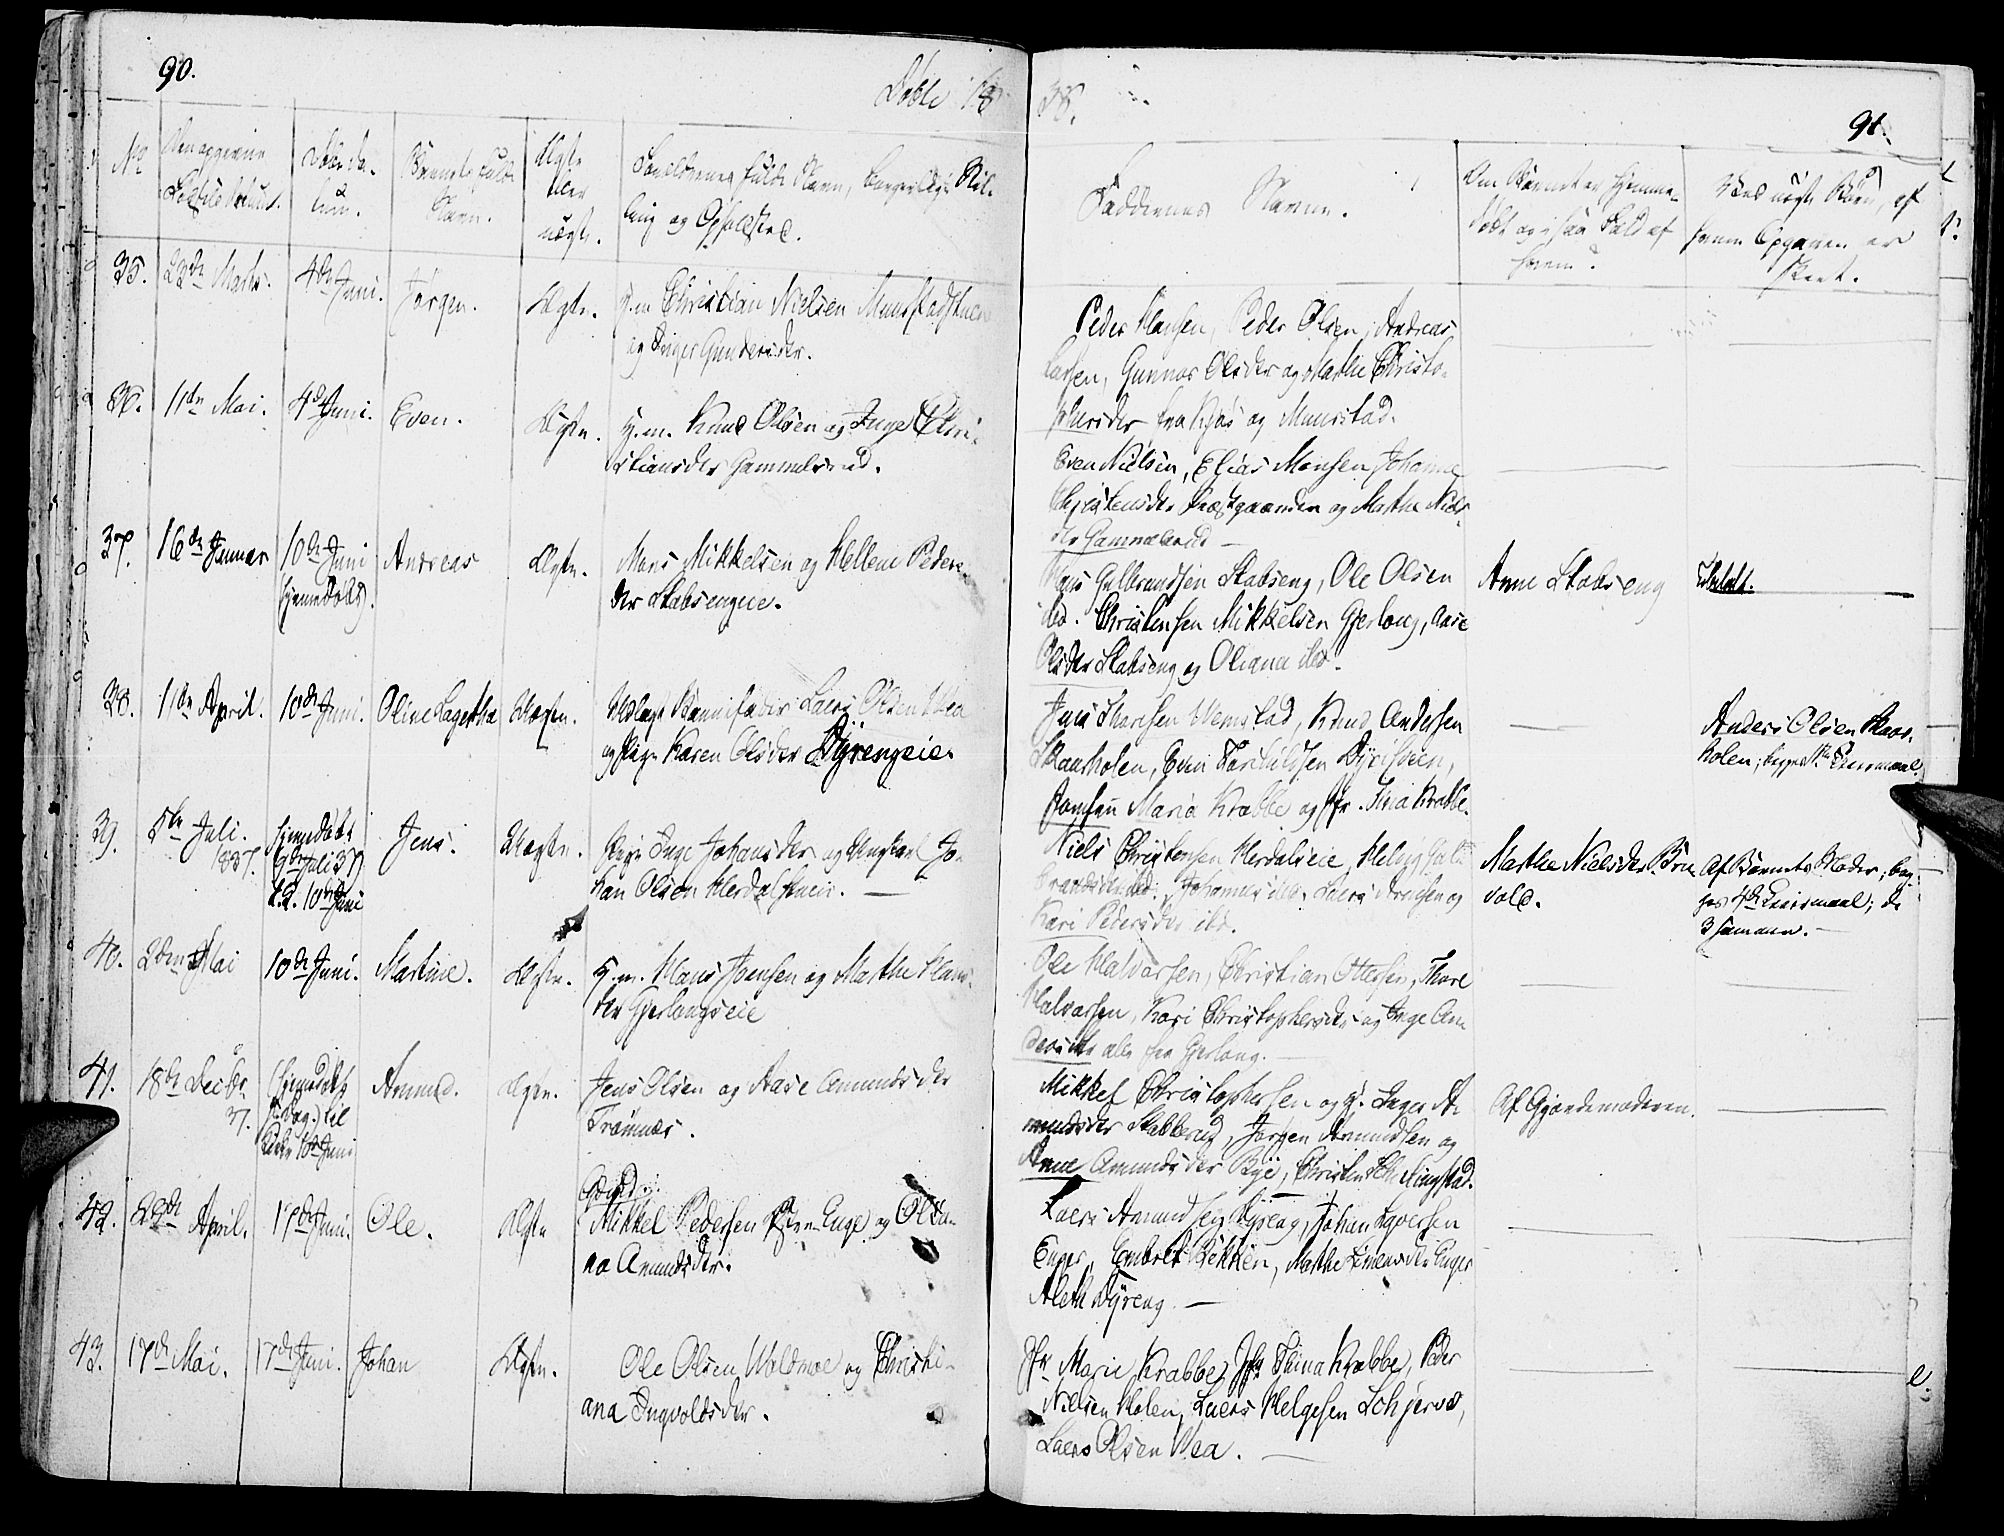 90.
Døbte 18
38.
91.
No
Den opgivne
Fødsels Datum.
Døbe Da-
tum.
Barnets fulde
Navn.
Ægte
eller
uægte.
Forældrenes fulde Navn, borgerlige Stil-
ling og Opholdsted.
Faddernes Navne.
Om Barnet er hjemme-
døbt og i saa Fald af
hvem?
Ved uægte Børn, af
hvem Opgaven er
skeet.
35.
23de Marts.
4de Juni.
Jørgen.
Ægte.
G.m. Christian Nielsen
og Inger Gundersdr.
Peder Hansen, Peder Olsen, Andreas
Larsen, Gunnor Olsdr og Marthe Christo-
phersdr fra Kjøs og Munstad.
36.
11te Mai.
4de Juni.
Even.
Ægte.
G.m. Knud Olsen og Inger Chri-
stiansdr Gammelsrud.
Even Nielsen, Elias Monsen, Johanne
Christensdr Præstgaarden og Marthe Niels-
dr Gammelsrud
37.
16de Januar
10de Juni
hjemmedøbt).
Andreas
Ægte.
Mons Mikkelsen og Hellene Peders-
dr Skabsengeie.
Hans Gulbrandsen Skabseng, Ole Olsen
ibd. Christensen Mikkelsen Gjerlaug, Aase
Olsdr Skabseng og Oliana ibd.
Anne Skabseng
38.
11te April.
10de Juni.
Oline Lagertha
Uægte.
Udlagt Barnefader Laers Olsen Wea
og Pige Karen Olsdr Dÿrengeie.
Jens Thoresen Wemstad, Knud Andersen
Skaarholen, Even Torkildsen Dÿristeien,
Jomfru Maria Krabbe og Jfr. Thina Krabbe.
Anders Olsen Skaar-
holen; begges 1ste Leiermaal.
39.
5te Juli.
1837.
hjemmedøbt
9de Juli 37)
t.d. 10de Juni
Jens.
Uægte.
Pige Inge Johansdr og Ungkarl Jo-
han Olsen Herdalseie.
Niels Christensen Herdalseie, Helvig
brandsdr ibd. Johannes ibd, Laers Arnesen og
Kari Pedersdr ibd.
Marthe Nielsdr Bru-
vold.
Af Barnets Moder; beg-
ges 4de Leiermaal; de
3 sammen.
40.
2den Mai
10de Juni.
Martine.
Ægte.
G.m. Hans Jensen og Marthe Hans-
dr Gjerlaugseie
Ole Halvorsen, Christian Ottesen, Thore
Halvorsen, Kari Christophersdr og Inge An-
dersdr alle fra Gjerlaug.
41.
18de Decbr.
37.
(hjemmedøbt
s. Dag) til
Kirke 10de Juni
Amund.
Ægte.
Jens Olsen og Aase Amundsdr
Trømnæs.
Mikkel Christophersen og g. Inger A-
mundsdr Skabberud, Jørgen Amundsen og
Anne Amundsdr Bye, Christen Ringstad.
Af Gjordemoderen.
42.
23de April.
17de Juni.
Ole.
Ægte
Gaard.
Mikkel Pedersen Enge og Olia-
na Amundsdr.
Laers Amundsen Dÿreng, Johan Syversen
Enger, Embret Bekken, Marthe Simensdr Enger
Aleth Dÿreng.
43.
17de Mai.
17de Juni.
Johan
Ægte.
Ole Olsen Woldmoe og Christi-
ana Ingvoldsdr.
Jfr. Marie Krabbe, Jfr Thina Krabbe, Peder
Nilsen Holen, Laers Helgesen
Laers Olsen Wea.